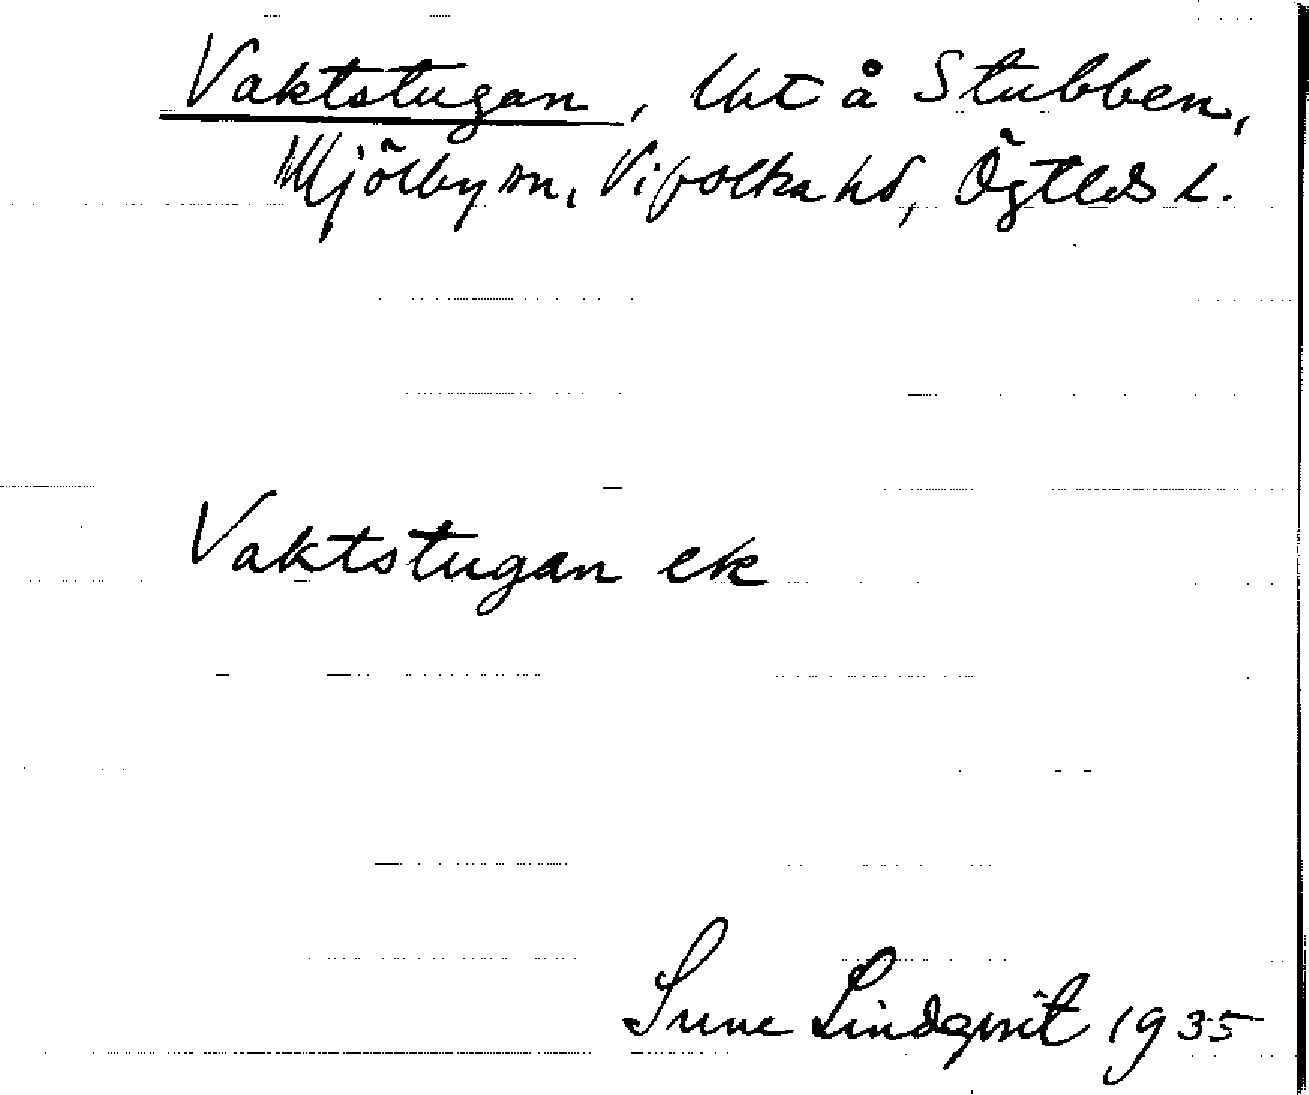 Vaktstugan, lht å Stubben,
Mjölby sn, Vifolka hd, Ögtlds l.
Vaktstugan ek
Sune Lindqvist 1935